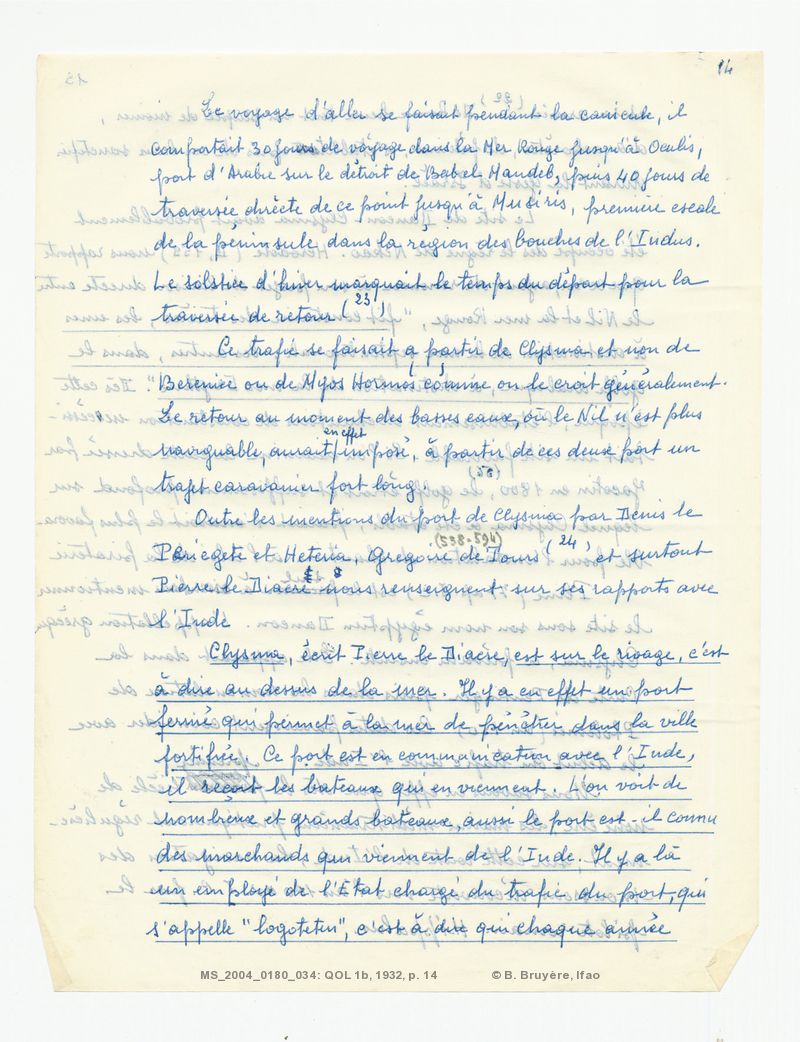 14
Le voyage d'aller se faisait pendant la canicule, il
comportait 30 jours de voyage dans la Mer Rouge jusqu'à Ocelis,
port d'Arabie sur le détroit de Bab el Mandeb, puis 40 jours de
traversée directe de ce point jusqu'à Muziris, première escale
de la péninsule dans la région des bouches de l'Indus.
Le solstice d'hiver marquait le temps du départ pour la
traversée de retour (23)
Ce trafic se faisait a partir de Clysma et non de
Berenice ou de Myos Hormos comme on le croit généralement.
Le retour au moment des basses eaux, où le Nil n'est plus
naviguable, aurait en effet imposé, à partir de ces deux port un
trajet caravanier fort long.
Outre les mentions du port de Clysma par Denis le
Périégète et Heteria, Grégoire de Tours (538-594) (24) et surtout
Pierre le Diacre nous renseignent sur ses rapports avec
l'Inde
Clysma, écrit Pierre le Diacre, est sur le rivage, c'est
à dire au dessus de la mer. Il y a en effet un port
fermé qui permet à la mer de pénétrer dans la ville
fortifiée. Ce port est en communication avec l'Inde,
il reçoit les bateaux qui en viennent. L'on voit de
nombreux et grands bateaux, aussi le port est-il connu
des marchands qui viennent de l'Inde. Il y a là
un employé de l'Etat chargé du trafic du port, qui
s'appelle "logotetus", c'est à dire qui chaque année
MS_2004_0180_034: QOL 1b, 1932, p. 14 © B. Bruyère, Ifao